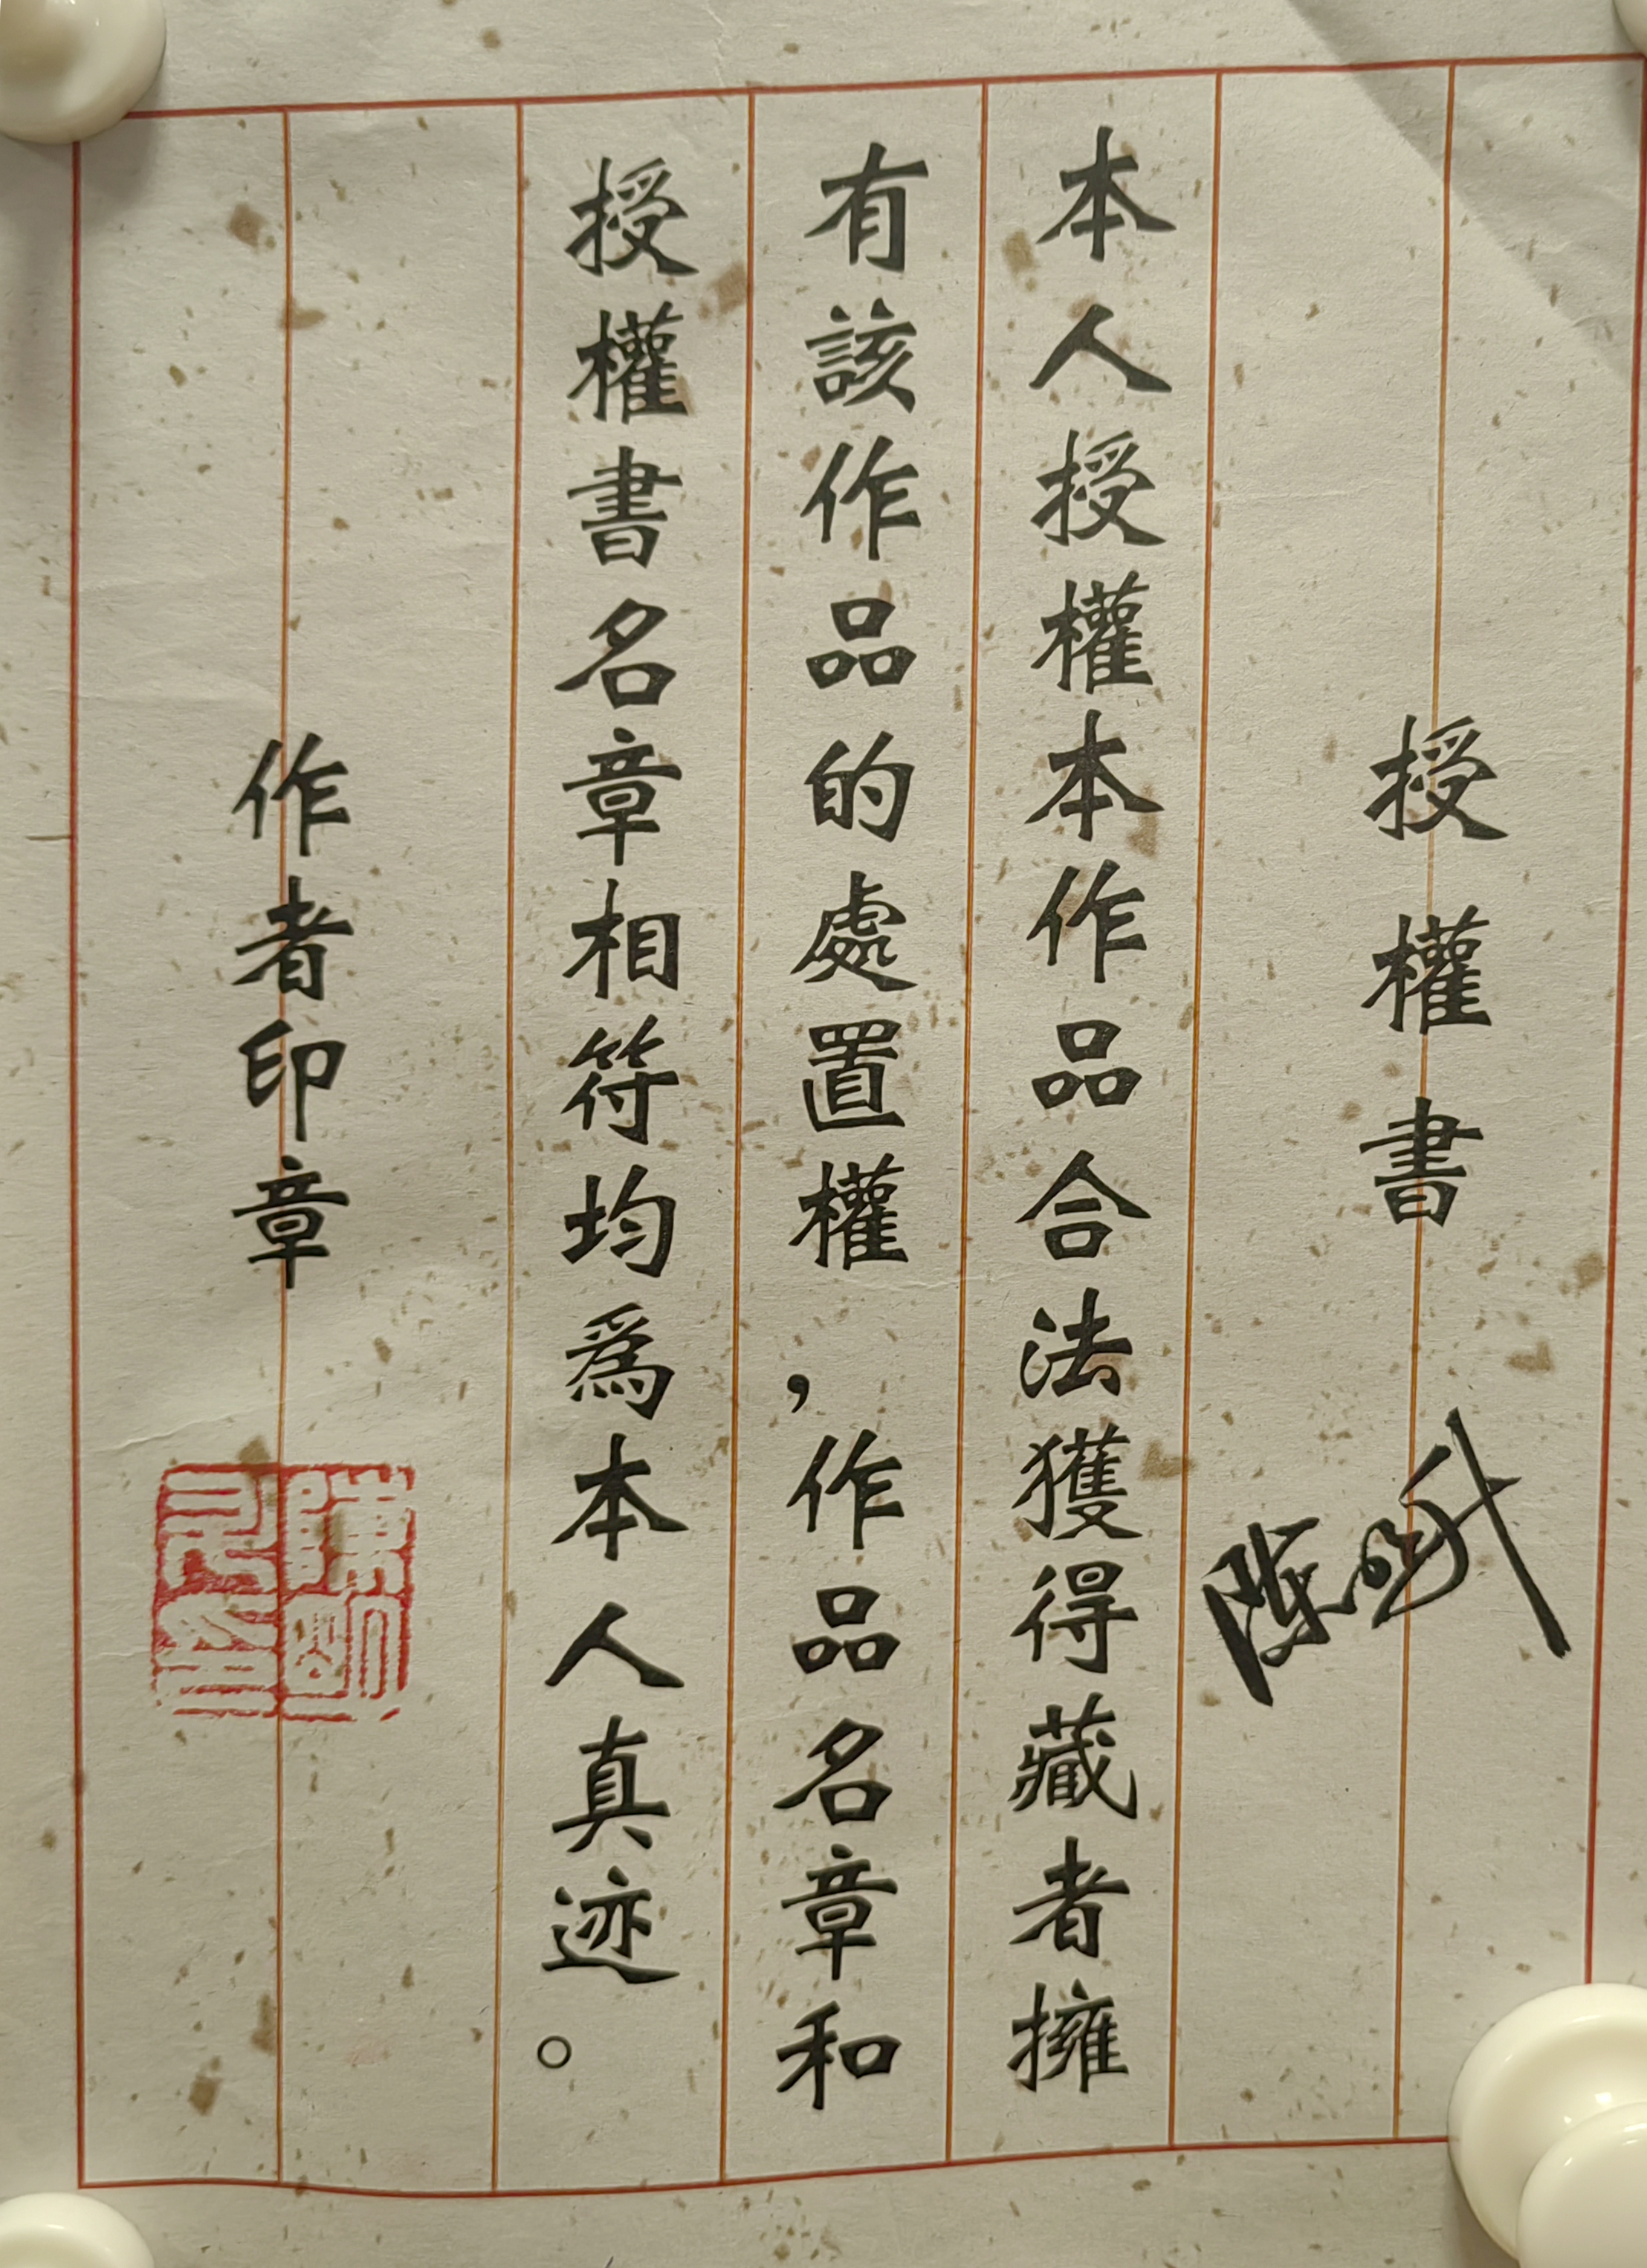 授權書
本人授權本作品合法獲得藏者擁
有該作品的處置權，作品名章和
授權書名章相符均爲本人真迹。
作者印章